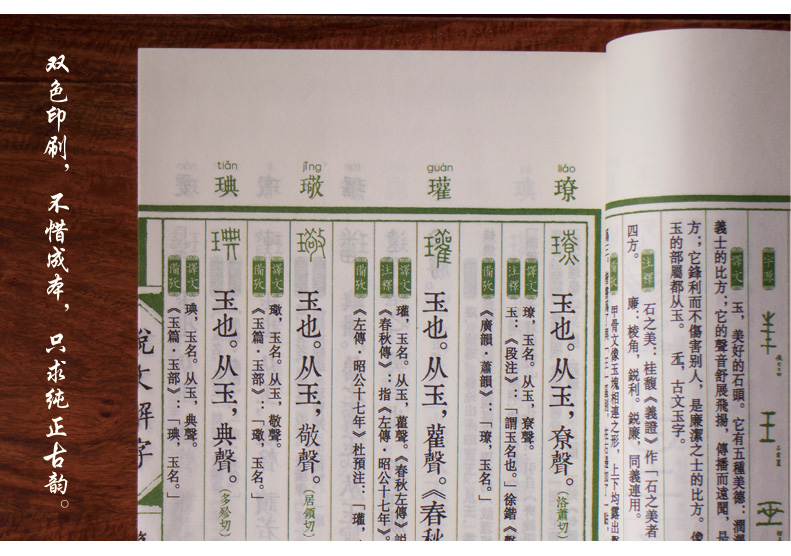 双色印刷，不惜成本，只求纯正古韵。
字源
譯文 玉，美好的石頭。它有五種美德：潤澤
義士的比方；它的聲音舒展飛揚，傳播而遠聞，是
方；它鋒利而不傷害別人，是廉潔之士的比方。像
玉的部屬都从玉。𠙻，古文玉字。
注釋 石之美：桂馥《義證》作「石之美者
四方。 廉：棱角，鋭利。鋭廉，同義連用。
甲骨文像玉塊相連之形，上下均露出
liáo
璙
玉也。从玉，尞聲。（洛蕭切）
譯文 璙，玉名。从玉，尞聲。
注釋 玉：《段注》：「謂玉名也。」徐鍇《繫
備攷 《廣韻·蕭韻》：「璙，玉名。」
guàn
瓘
玉也。从玉，雚聲。《春秋
譯文 瓘，玉名。从玉，雚聲。《春秋左傳》説
注釋 《春秋傳》：指《左傳·昭公十七年》。
備攷 《左傳·昭公十七年》杜預注：「瓘，
jǐng
璥
玉也。从玉，敬聲。（居領切）
譯文 璥，玉名。从玉，敬聲。
備攷 《玉篇·玉部》：「璥，玉名。」
tiǎn
琠
玉也。从玉，典聲。（多殄切）
譯文 琠，玉名。从玉，典聲。
備攷 《玉篇·玉部》：「琠，玉名。」
說文解字